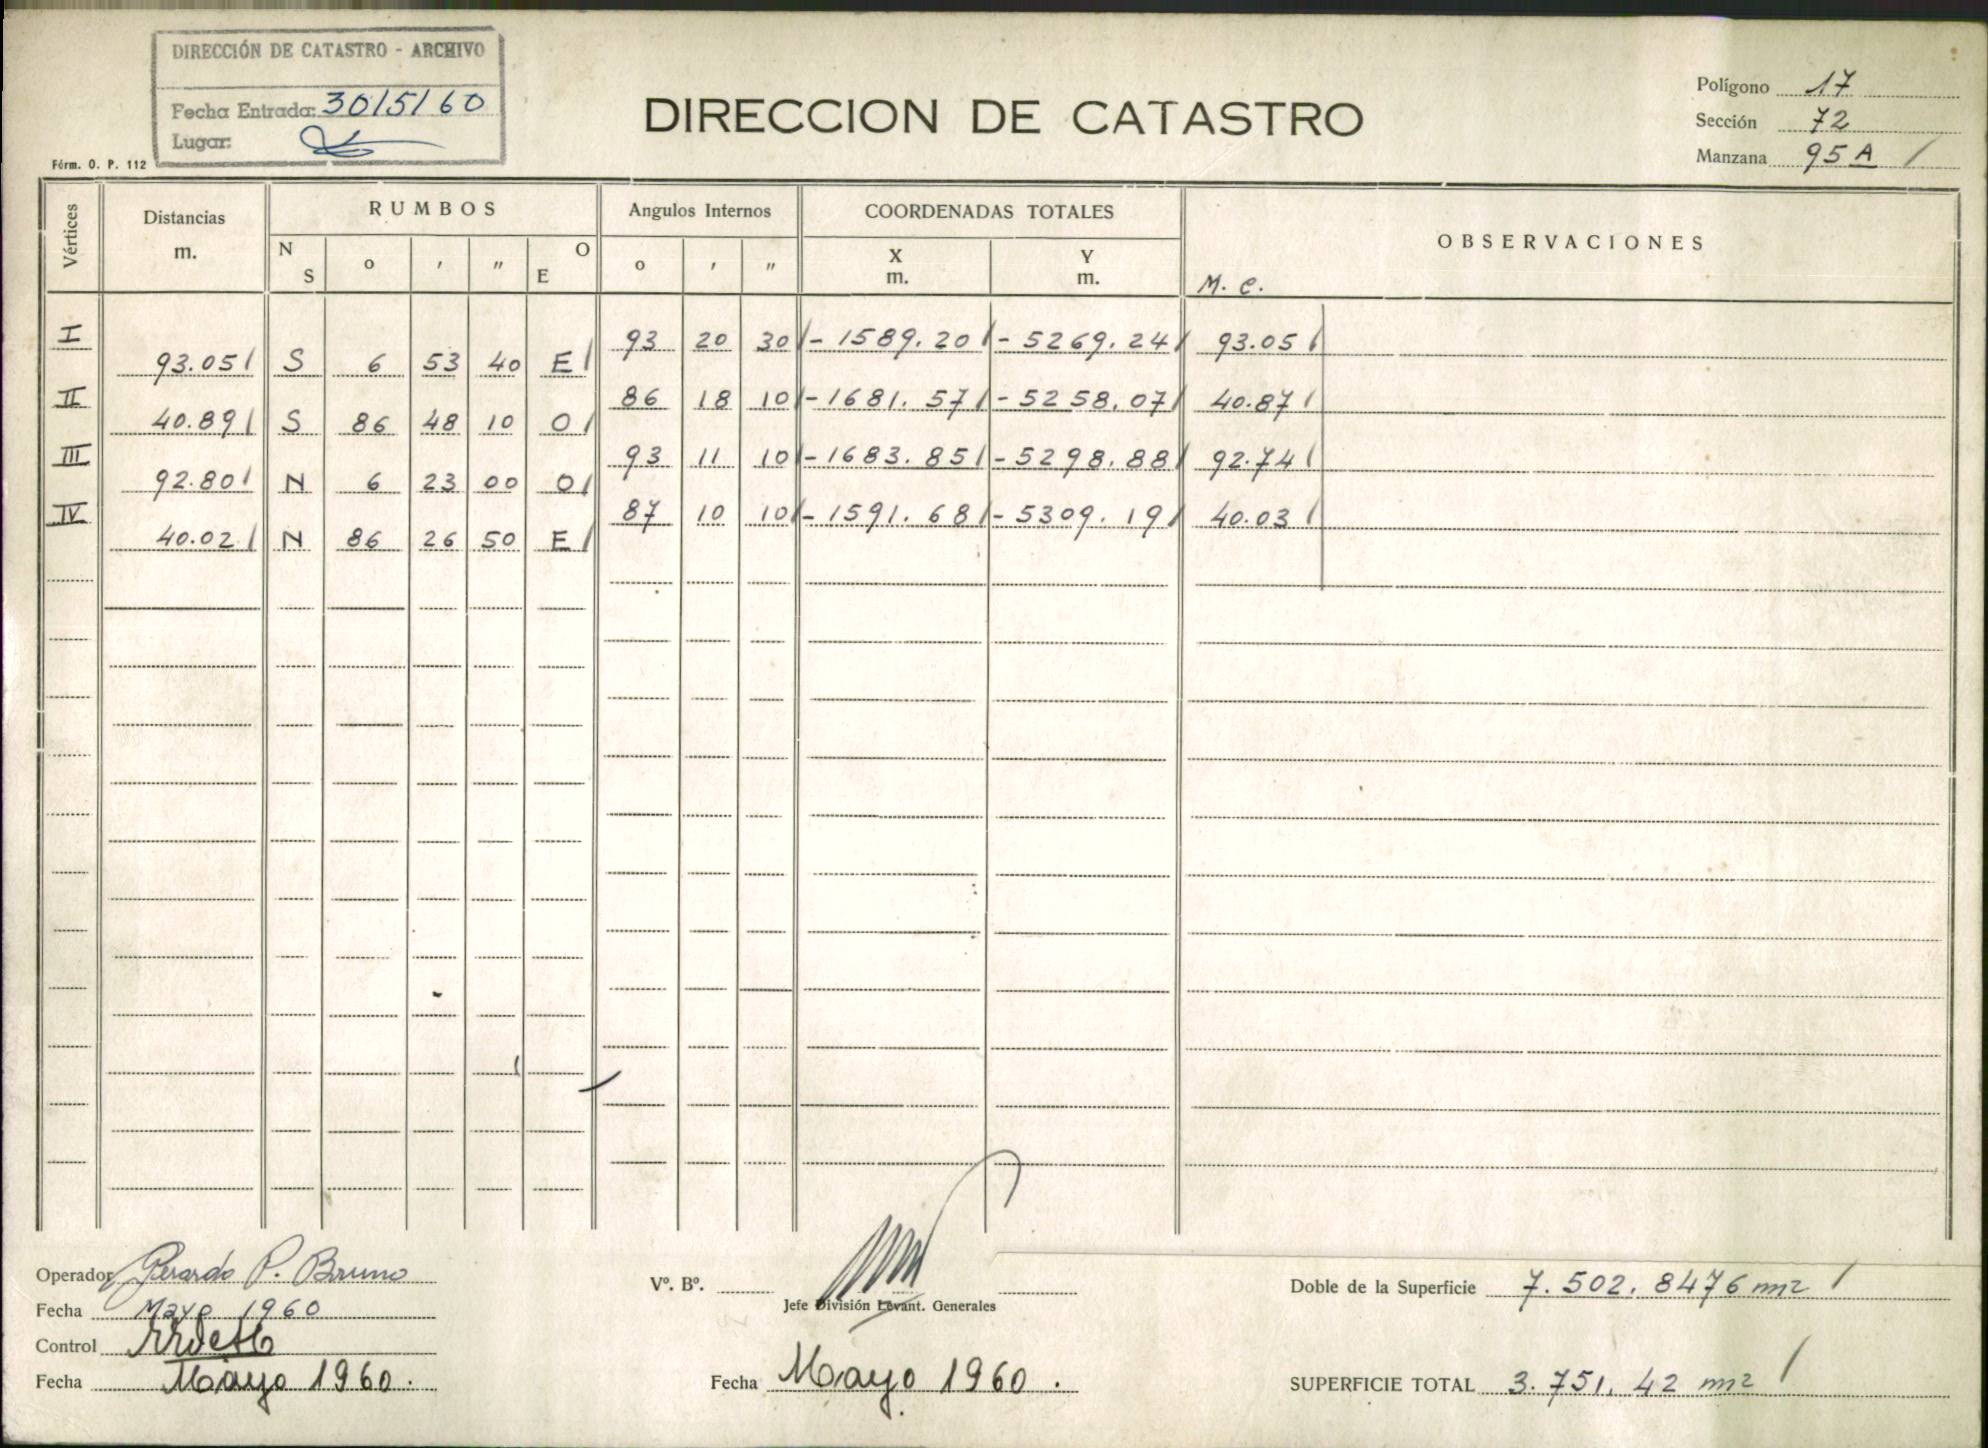 DIRECCIÓN DE CATASTRO - ARCHIVO
Fecha Entrada: 30/5/60
Lugar:
Fórm. O. P. 112
DIRECCION DE CATASTRO
Polígono 17
Sección 72
Manzana 95 A /
Vértices Distancias m. RUMBOS Angulos Internos COORDENADAS TOTALES OBSERVACIONES
N S o ' " E O o ' " X m. Y m. M. C.
I 93 20 30 - 1589.20 - 5269.24 93.05
93.05 S 6 53 40 E
II 86 18 10 - 1681.57 - 5258.07 40.87
40.89 S 86 48 10 O
III 93 11 10 - 1683.85 - 5298.88 92.74
92.80 N 6 23 00 O
IV 87 10 10 - 1591.68 - 5309.19 40.03
40.02 N 86 26 50 E
Operador Gerardo P. Bruno
Fecha Mayo 1960
Control
Fecha Mayo 1960.
Vº. Bº.
Jefe División Levant. Generales
Fecha Mayo 1960.
Doble de la Superficie 7.502.8476 m2 /
SUPERFICIE TOTAL 3.751.42 m2 /